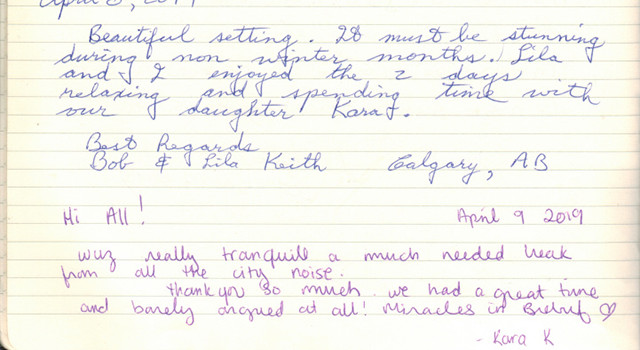 April 8, 2019
Beautiful setting. It must be stunning
during non winter months. Lila
and I enjoyed the 2 days
relaxing and spending time with
our daughter Kara.
Best Regards
Bob & Lila Keith Calgary, AB
Hi All! April 9 2019
wuz really tranquill a much needed break
from all the city noise.
thank you so much we had a great time
and barely argued at all! Miracles in
- Kara K